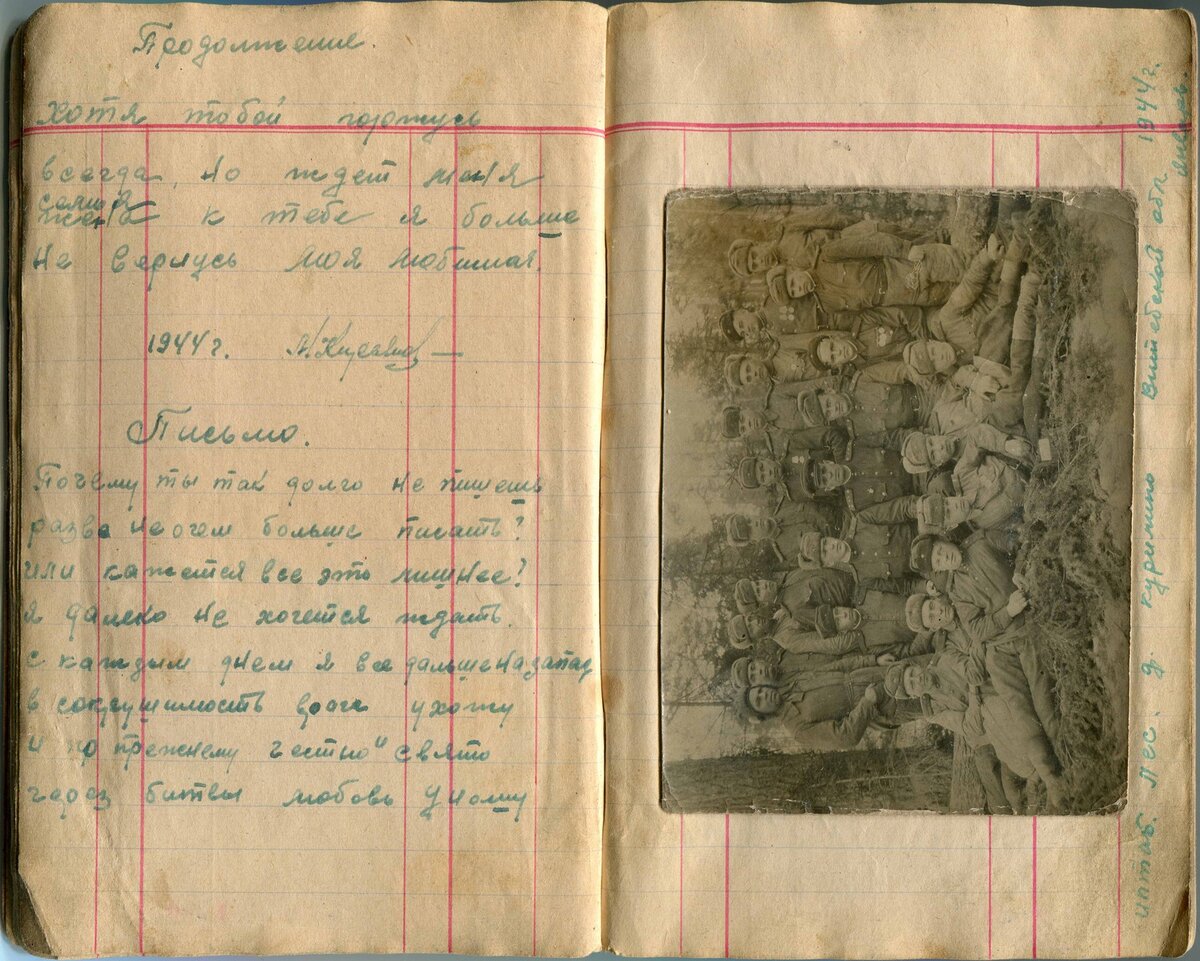 Продолжение.
хотя тобой горжусь
всегда, но ждет меня
семья
жена к тебе я больше
не вернусь моя любимая.
1944 г.
Письмо.
Почему ты так долго не пишешь
разве не о чем больше писать?
или кажется все это лишнее?
я далеко не хочется ждать.
с каждым днем я все дальше на запад
в сокрушимость врага ухожу
и по прежнему честно и свято
через битвы любовь уношу
штаб. Лес. д. курино Витебской обл 1944 г.
январь